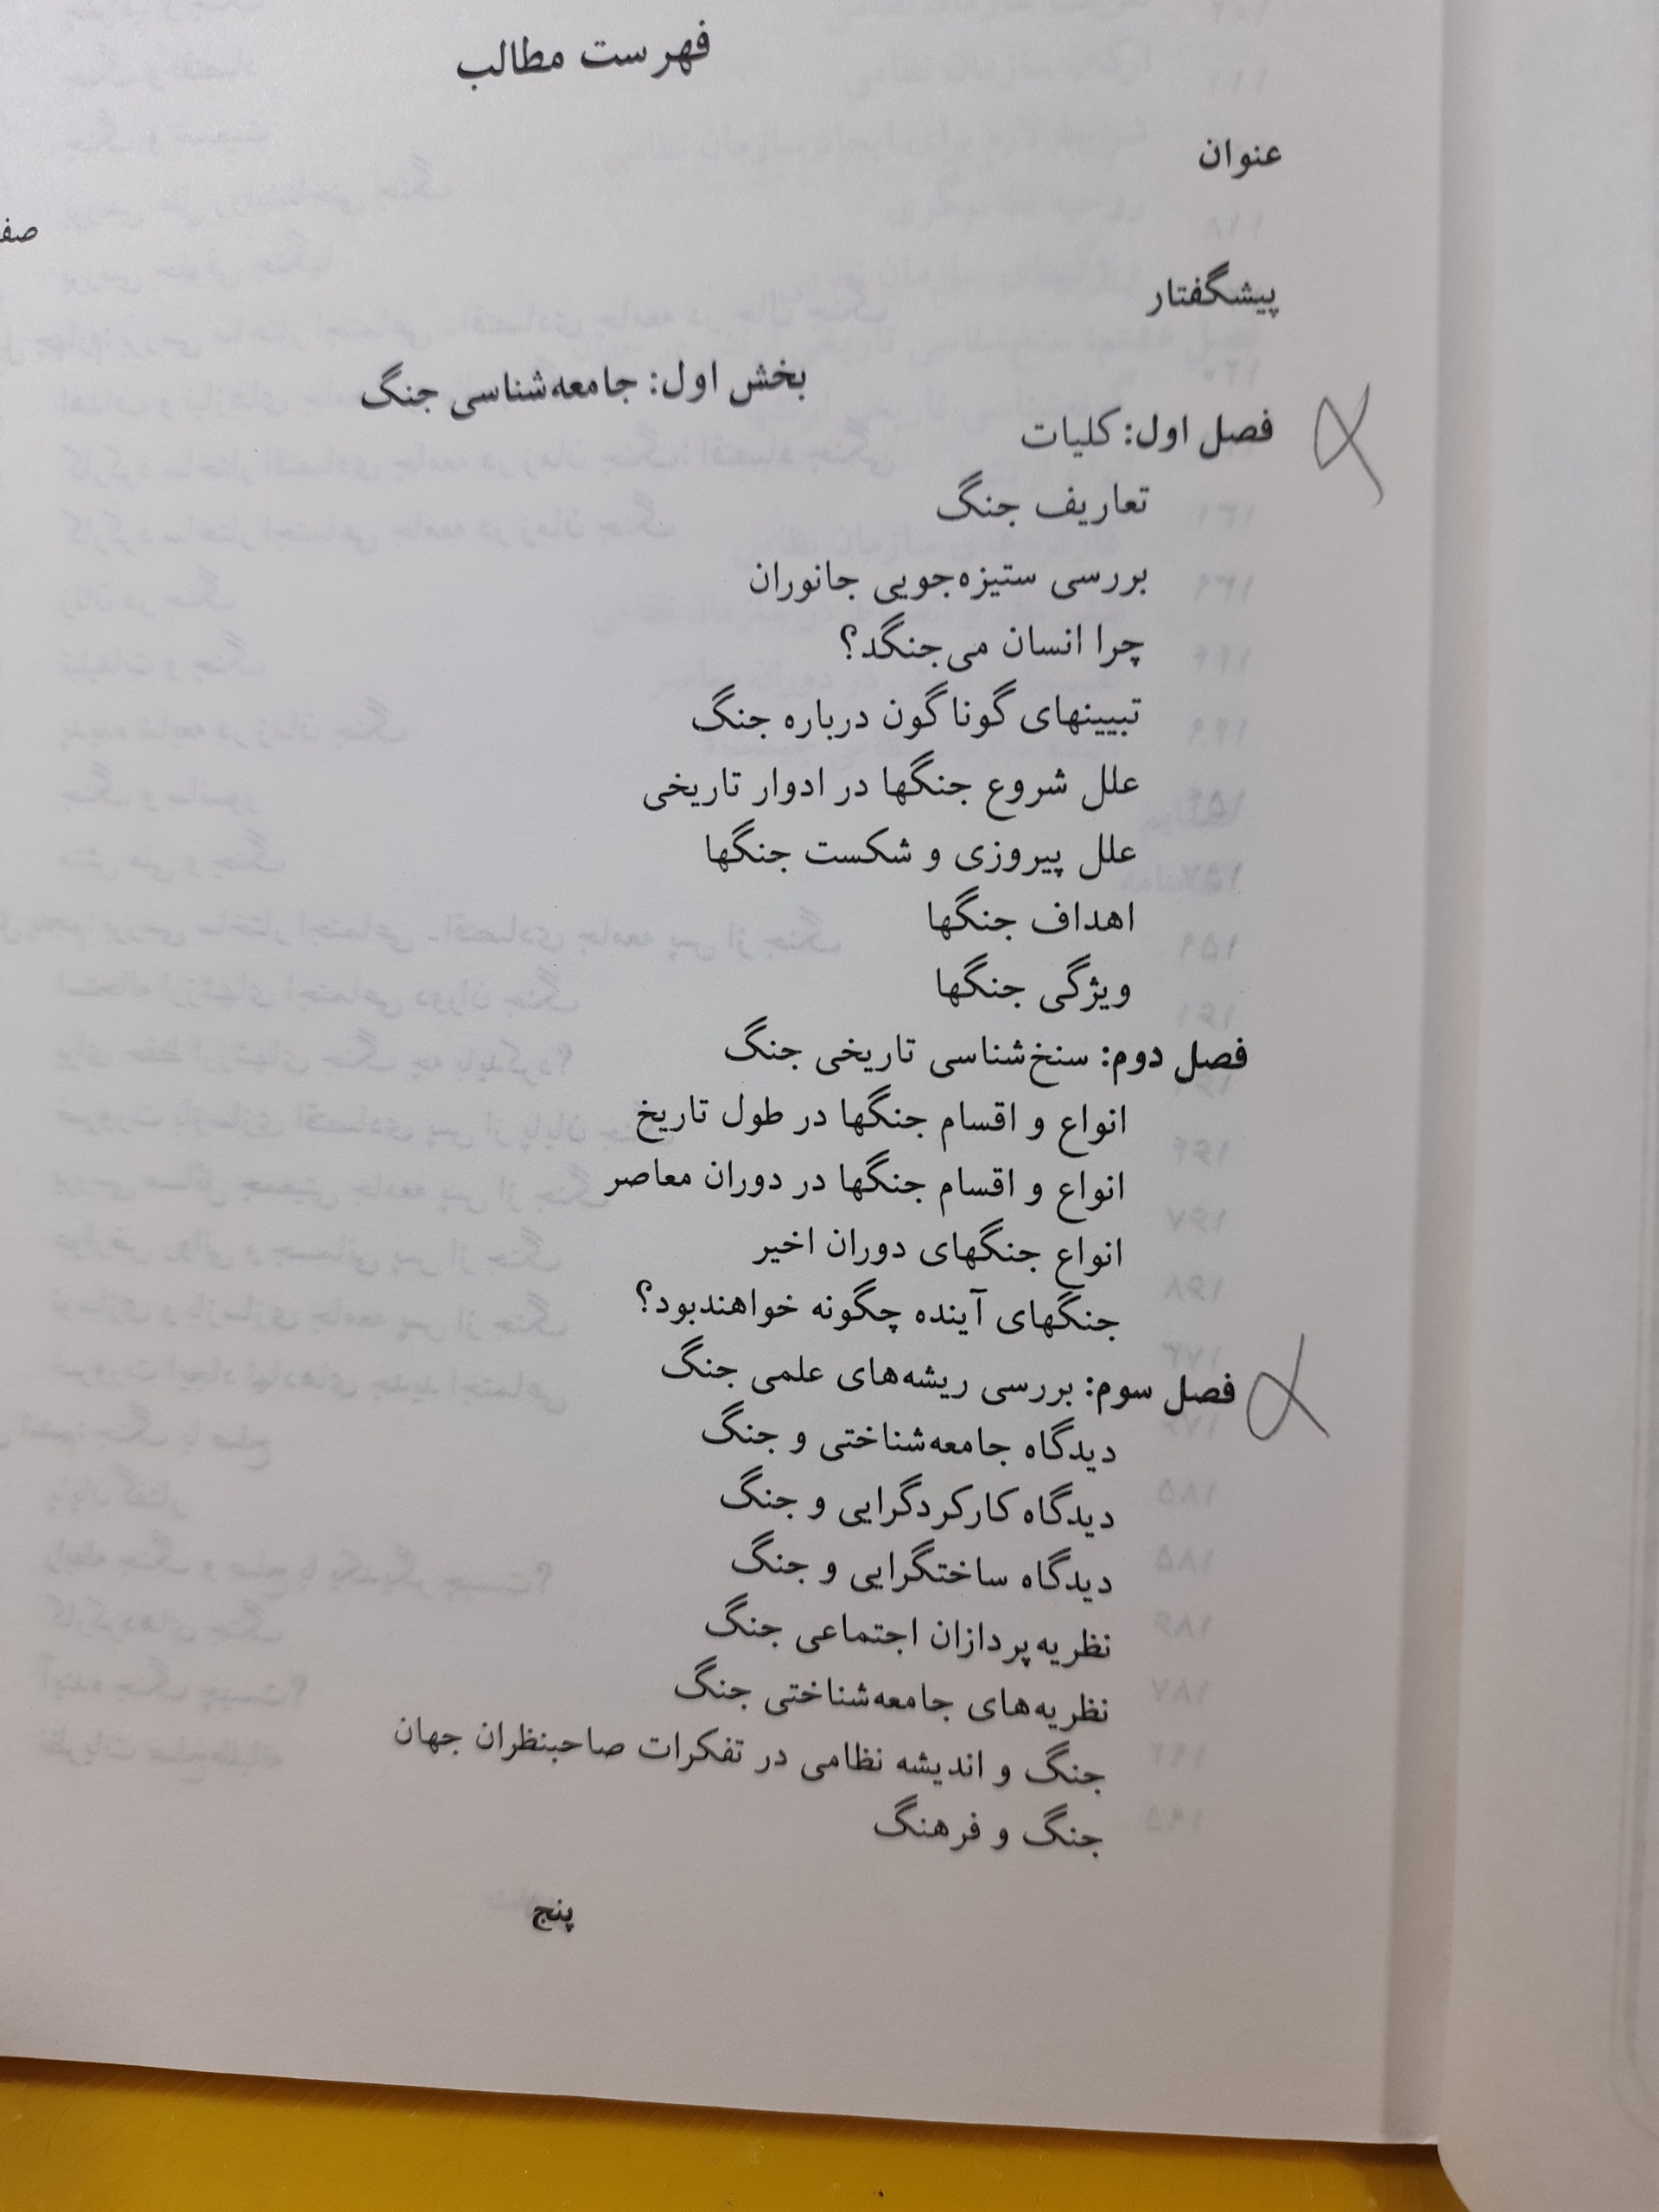 فهرست مطالب
عنوان
پیشگفتار
بخش اول: جامعه‌شناسی جنگ
فصل اول: کلیات
تعاریف جنگ
بررسی ستیزه‌جویی جانوران
چرا انسان می‌جنگد؟
تبیینهای گوناگون درباره جنگ
علل شروع جنگها در ادوار تاریخی
علل پیروزی و شکست جنگها
اهداف جنگها
ویژگی جنگها
فصل دوم: سنخ‌شناسی تاریخی جنگ
انواع و اقسام جنگها در طول تاریخ
انواع و اقسام جنگها در دوران معاصر
انواع جنگهای دوران اخیر
جنگهای آینده چگونه خواهندبود؟
فصل سوم: بررسی ریشه‌های علمی جنگ
دیدگاه جامعه‌شناختی و جنگ
دیدگاه کارکردگرایی و جنگ
دیدگاه ساختگرایی و جنگ
نظریه‌پردازان اجتماعی جنگ
نظریه‌های جامعه‌شناختی جنگ
جنگ و اندیشه نظامی در تفکرات صاحبنظران جهان
جنگ و فرهنگ
پنج